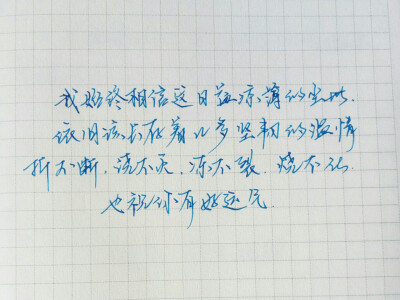 我始终相信这日益凉薄的尘世.
依旧该长存着几多坚韧的温情
折不断.浇不灭.冻不裂.烧不化.
也祝你有好运气.